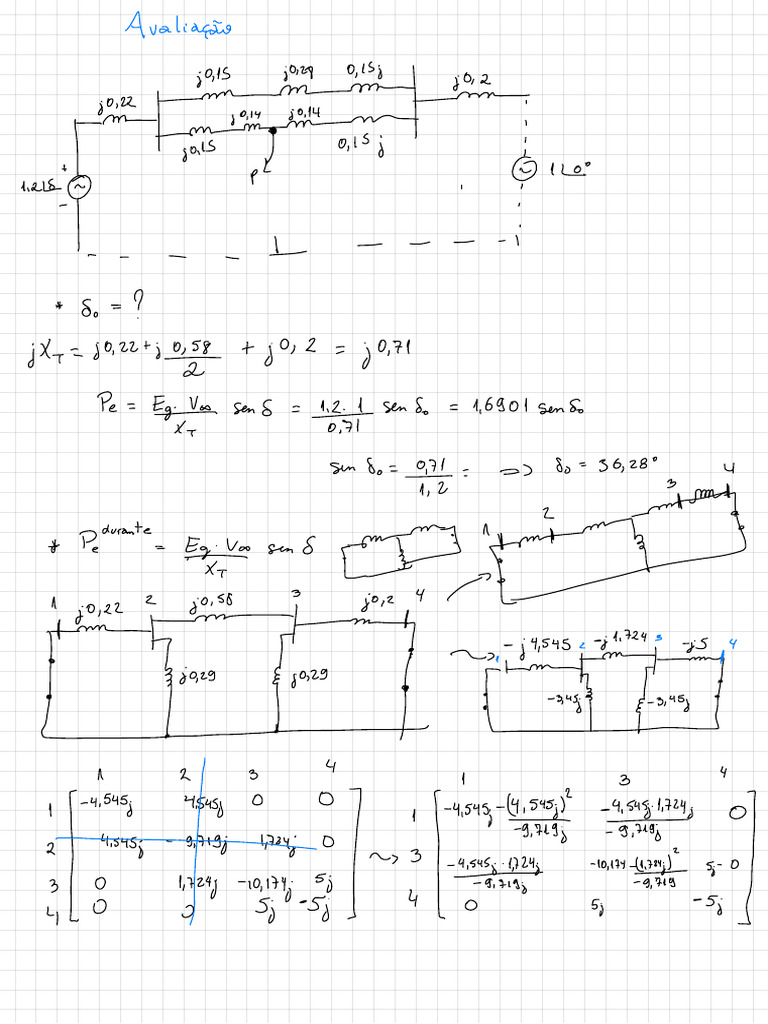 Avaliação
j0,15 j0,29 0,15j j0,2
j0,22 j0,14 j0,14
j0,15 0,15j
P
+
1,2∠δ 1∠0°
-
* δ₀ = ?
jX_T = j0,22 + j 0,58/2 + j0,2 = j0,71
Pe = Eg.V∞/X_T sen δ = 1,2.1/0,71 sen δ₀ = 1,6901 sen δ₀
sen δ₀ = 0,71/1,2 = ⇒ δ₀ = 36,28°
* Pe^durante = Eg.V∞/X_T sen δ
1 2 3 4
1 j0,22 2 j0,58 3 j0,2 4
j0,29 j0,29
1 -j4,545 2 -j1,724 3 -j5 4
-3,45j -3,45j
1 2 3 4
1 -4,545j 4,545j 0 0
2 4,545j -9,719j 1,724j 0
3 0 1,724j -10,174j 5j
4 0 0 5j -5j
1 3 4
1 -4,545j-(4,545j)²/-9,719j -4,545j.1,724j/-9,719j 0
3 -4,545j.1,724j/-9,719j -10,174-(1,724j)²/-9,719 5j-0
4 0 5j -5j